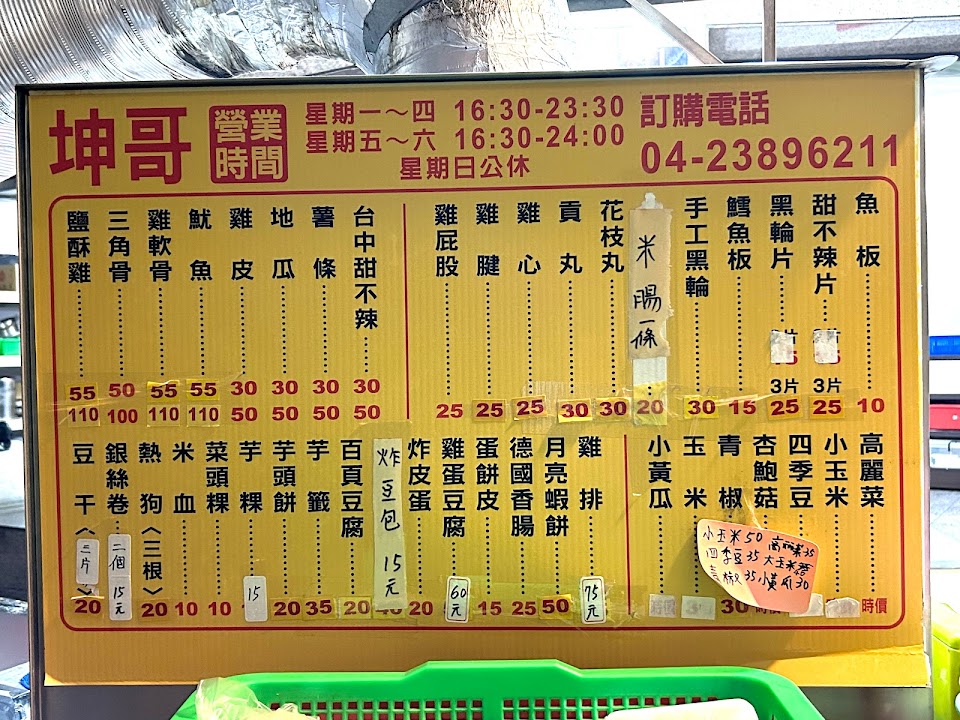 坤哥
營業時間
星期一～四 16:30-23:30
星期五～六 16:30-24:00
星期日公休
訂購電話
04-23896211
鹽酥雞 55 110
三角骨 50 100
雞軟骨 55 110
魷魚 55 110
雞皮 30 50
地瓜 30 50
薯條 30 50
台中甜不辣 30 50
雞屁股 25
雞腱 25
雞心 25
貢丸 30
花枝丸 30
米腸一條 20
手工黑輪 30
鱈魚板 15
黑輪片 3片 25
甜不辣片 3片 25
魚板 10
豆干〈三片〉 20
銀絲卷〈二個〉 15元
熱狗〈三根〉 20
米血 10
菜頭粿 10
芋粿 15
芋頭餅 20
芋籤 35
百頁豆腐 20
炸豆包 15元
炸皮蛋 20
雞蛋豆腐 60元
蛋餅皮 15
德國香腸 25
月亮蝦餅 50
雞排 75元
小黃瓜 時價
玉米
青椒 30
杏鮑菇 時價
四季豆
小玉米
高麗菜 時價
小玉米50 高麗菜35
四季豆35 大玉米
青椒35 小黃瓜30